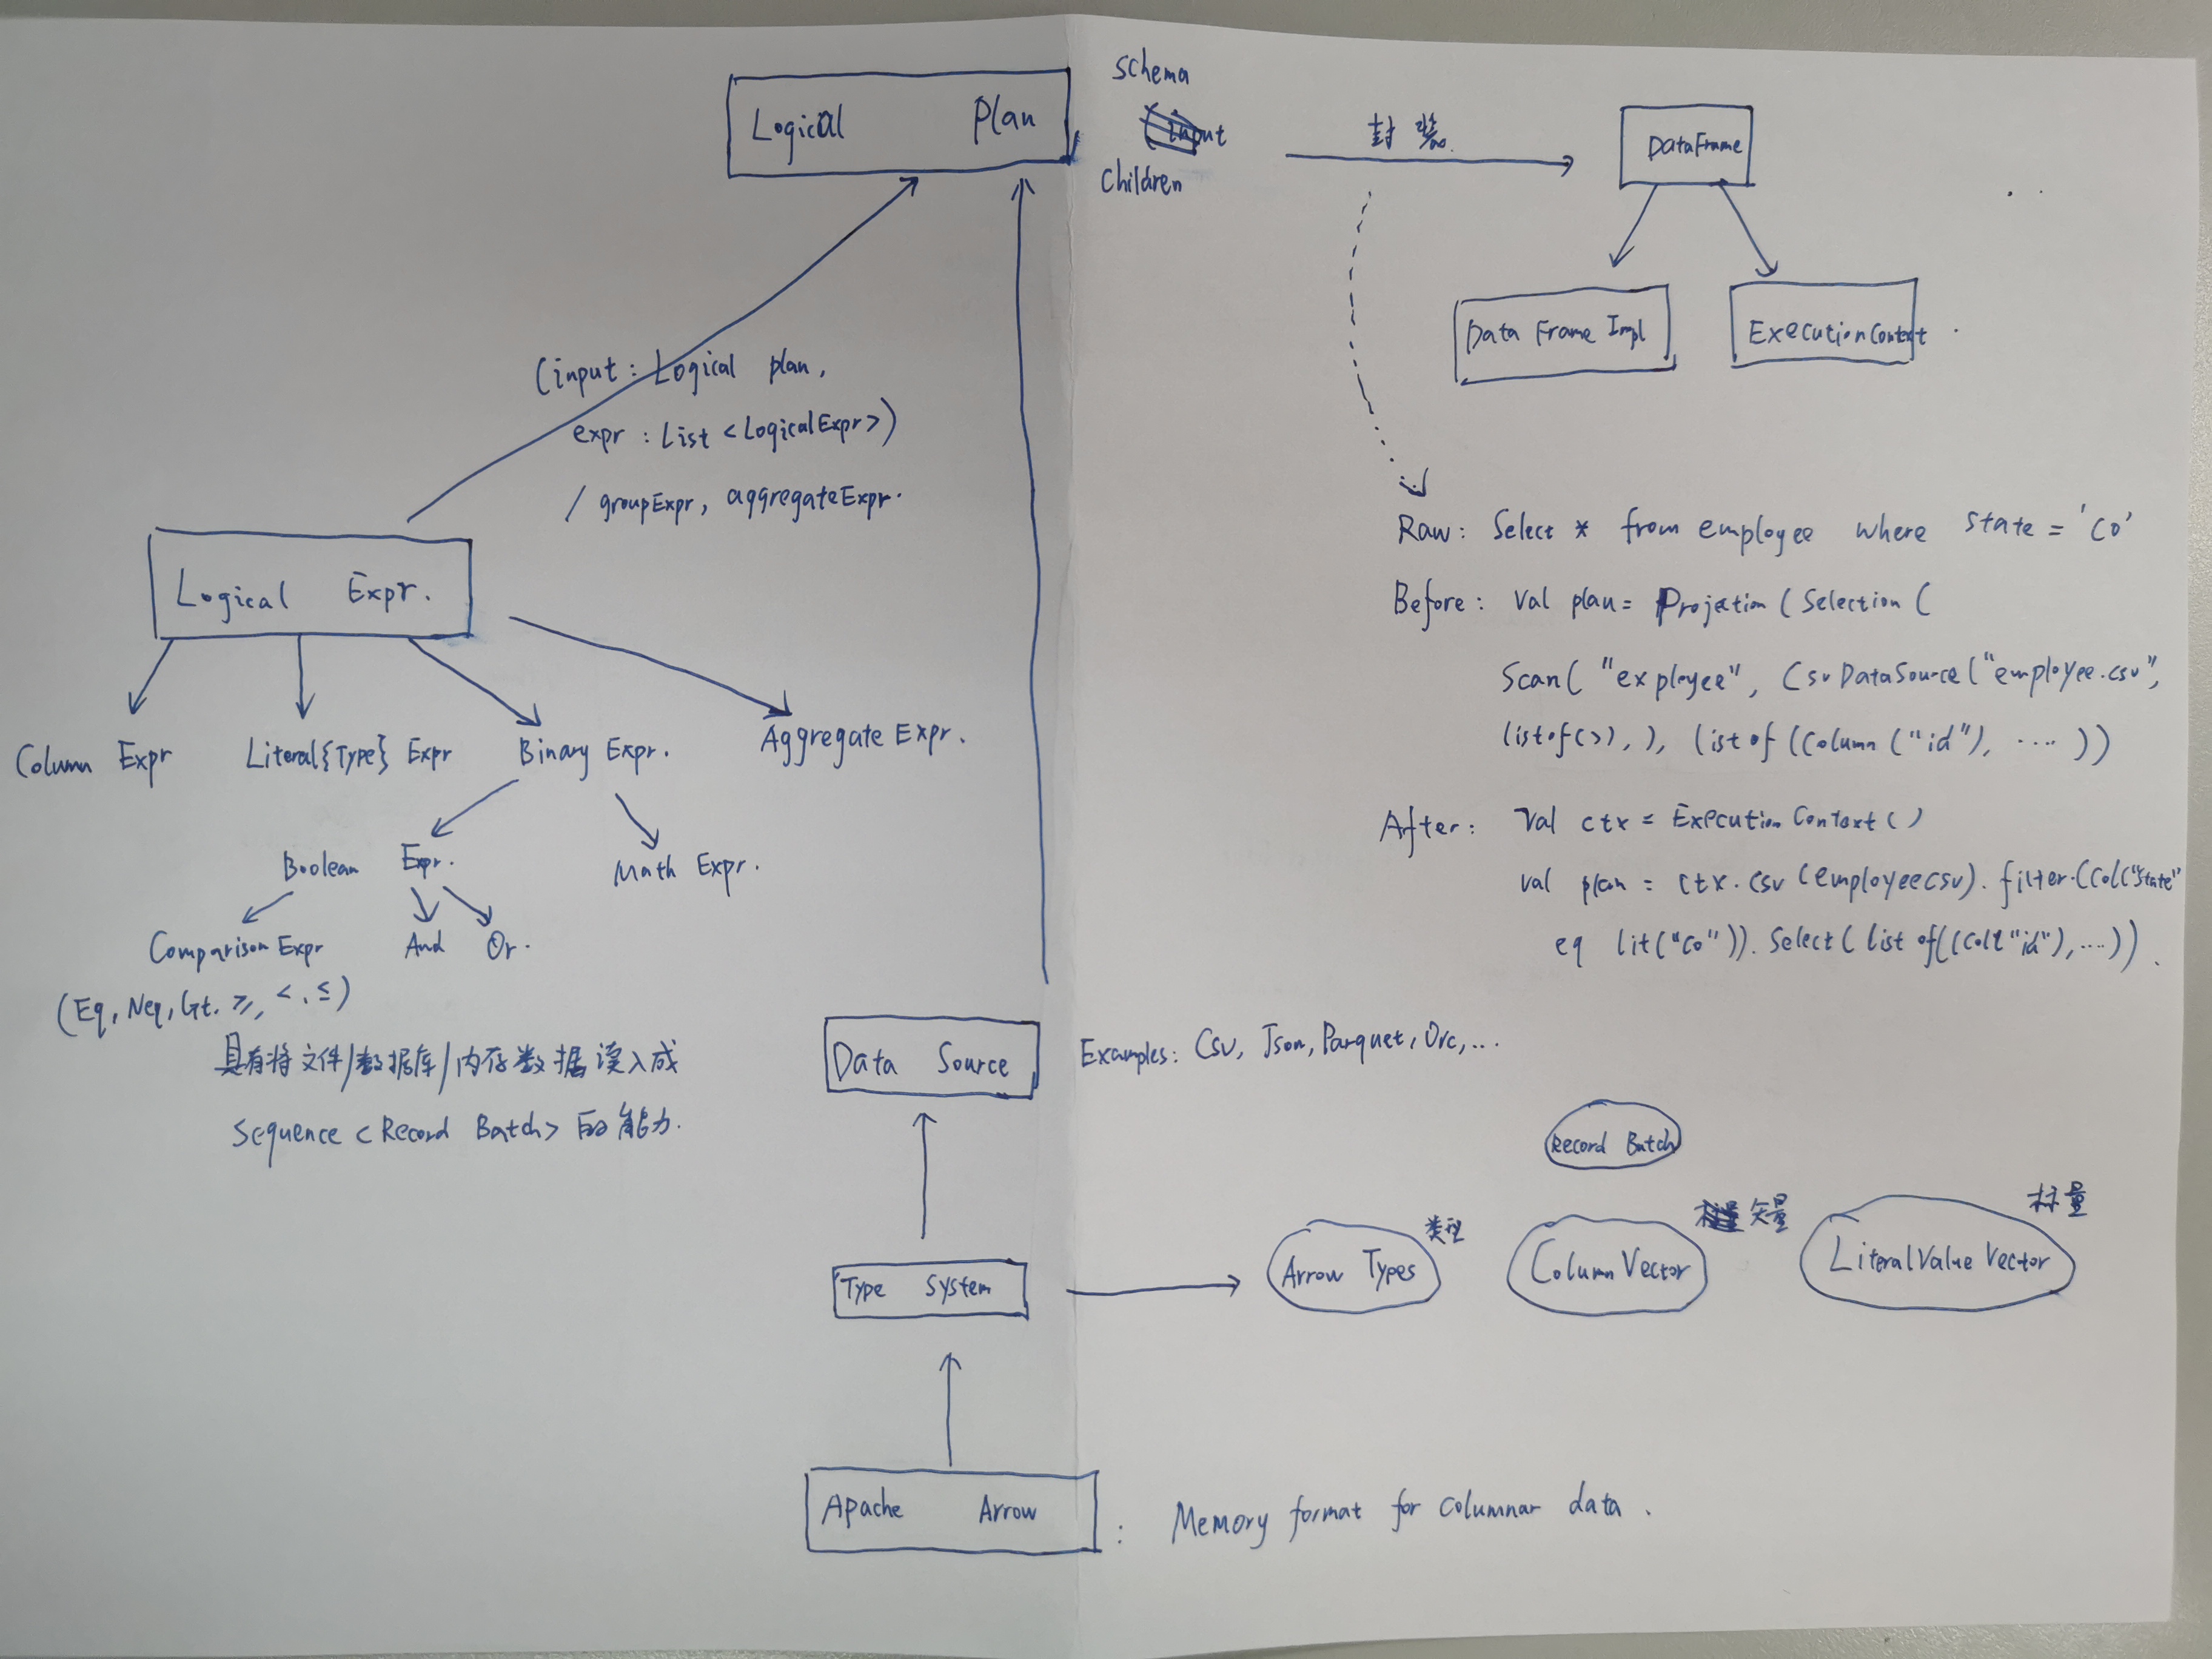 Logical Plan
Schema
Children
封装
DataFrame
Data Frame Impl
ExecutionContext
(input : Logical plan,
expr : List <LogicalExpr>)
/ groupExpr, aggregateExpr.
Logical Expr.
Column Expr
Literal{Type} Expr
Binary Expr.
Aggregate Expr.
Boolean Expr.
Math Expr.
Comparison Expr
And
Or.
(Eq, Neq, Gt. ≥, <, ≤)
具有将文件/数据库/内存数据读入成
Sequence <Record Batch> 的能力.
Raw: Select * from employee where state = 'CO'
Before: Val plan = Projection ( Selection (
Scan( "exployee", CsvDataSource("employee.csv",
listof()), ), listof ((Column ("id"), .... ))
After: Val ctx = Execution Context ( )
val plan = ctx.csv (employeecsv). filter.(Col("state"
eq lit("Co")). Select ( list of((Col("id"), ....))
Data Source
Examples: Csv, Json, Parquet, Orc, ...
Record Batch
Type System
Arrow Types
类型
ColumnVector
矢量
LiteralValueVector
标量
Apache Arrow
: Memory format for columnar data .